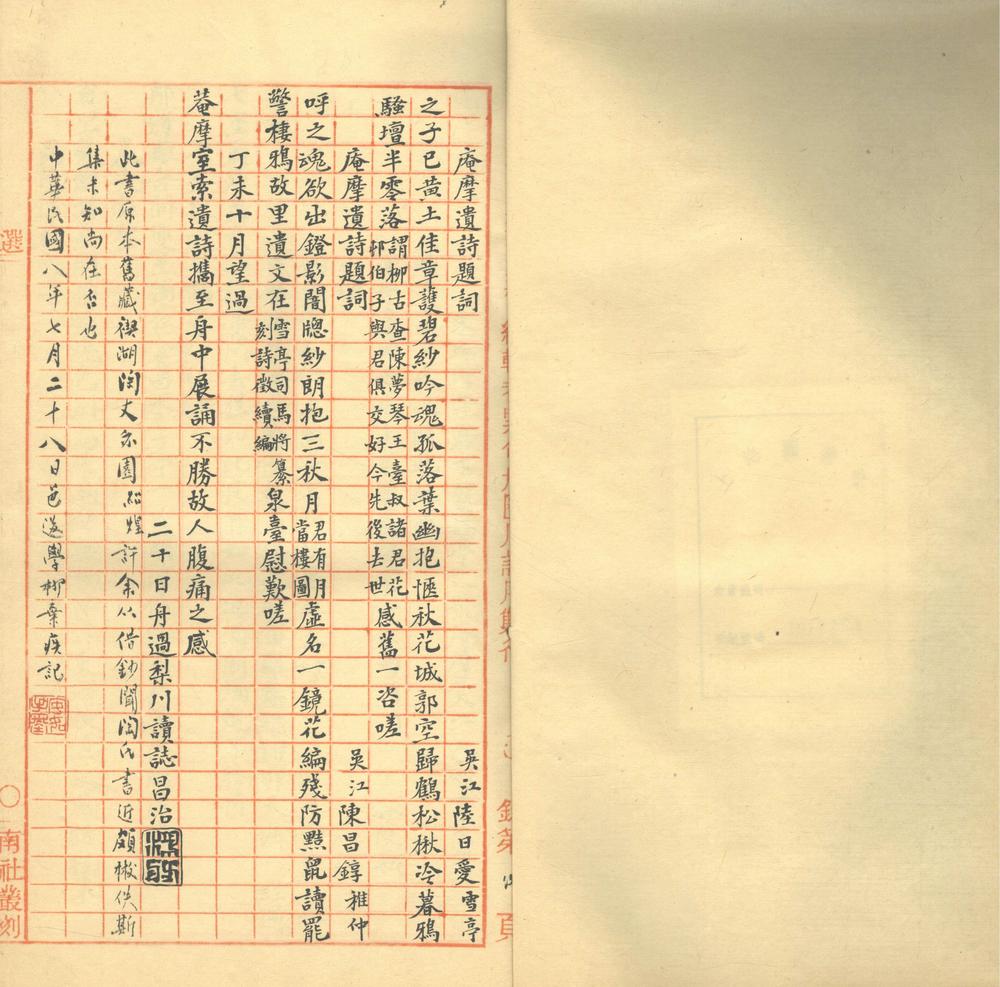 庵摩遺詩題詞　吳江陸日愛雪亭
之子已黃土佳章護碧紗吟魂孤落葉幽抱愜秋花城郭空歸鶴松楸冷暮鴉
騷壇半零落謂柳古查陳夢琴王臺叔諸君花邨伯子與君俱交好今先後去世感舊一咨嗟
庵摩遺詩題詞　吳江陳昌錞稚仲
呼之魂欲出鐙影闇牕紗朗抱三秋月君有月當樓圖虛名一鏡花編殘防黠鼠讀罷
警棲鴉故里遺文在雪亭司馬將纂刻詩徵續編泉臺慰歎嗟
丁未十月望過
菴摩室索遺詩攜至舟中展誦不勝故人腹痛之感
二十日舟過梨川讀誌昌治
此書原本舊藏禊湖陶丈亦園紹煌許余從借鈔聞陶氏書近頗散佚斯
集未知尚在否也
中華民國八年七月二十八日邑後學柳棄疾記
選
南社叢刻
頁